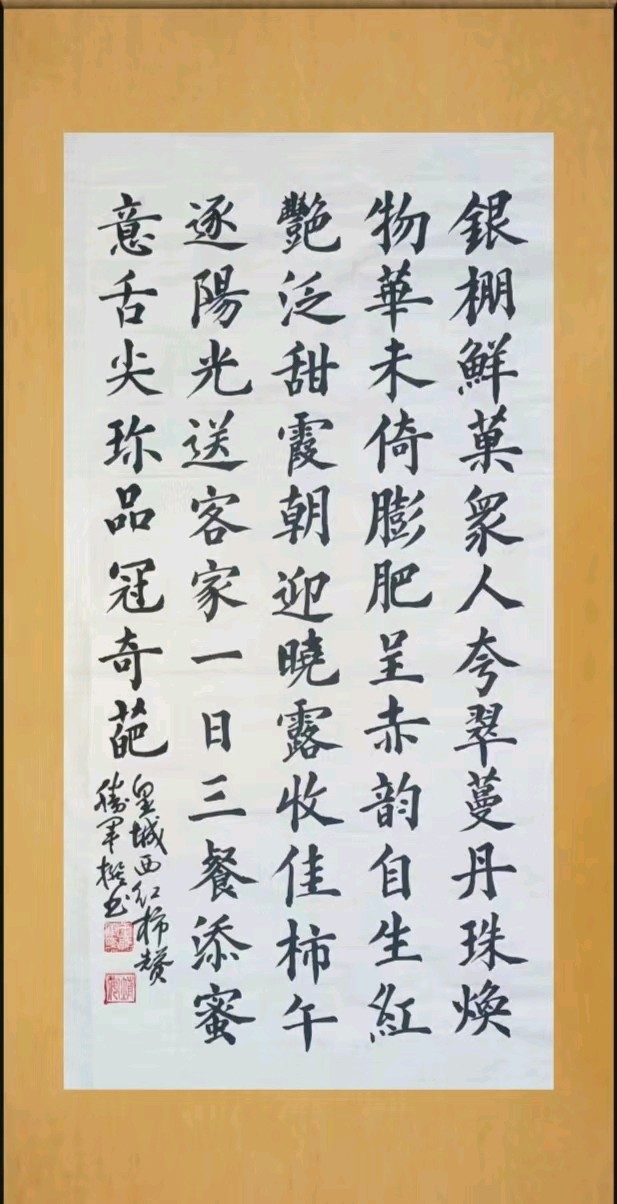 銀棚鮮菓眾人夸翠蔓丹珠煥
物華未倚膨肥呈赤韵自生紅
艷泛甜霞朝迎曉露收佳柿午
逐陽光送客家一日三餐添蜜
意舌尖珎品冠奇葩
皇城西紅柿贊
勝軍撰书